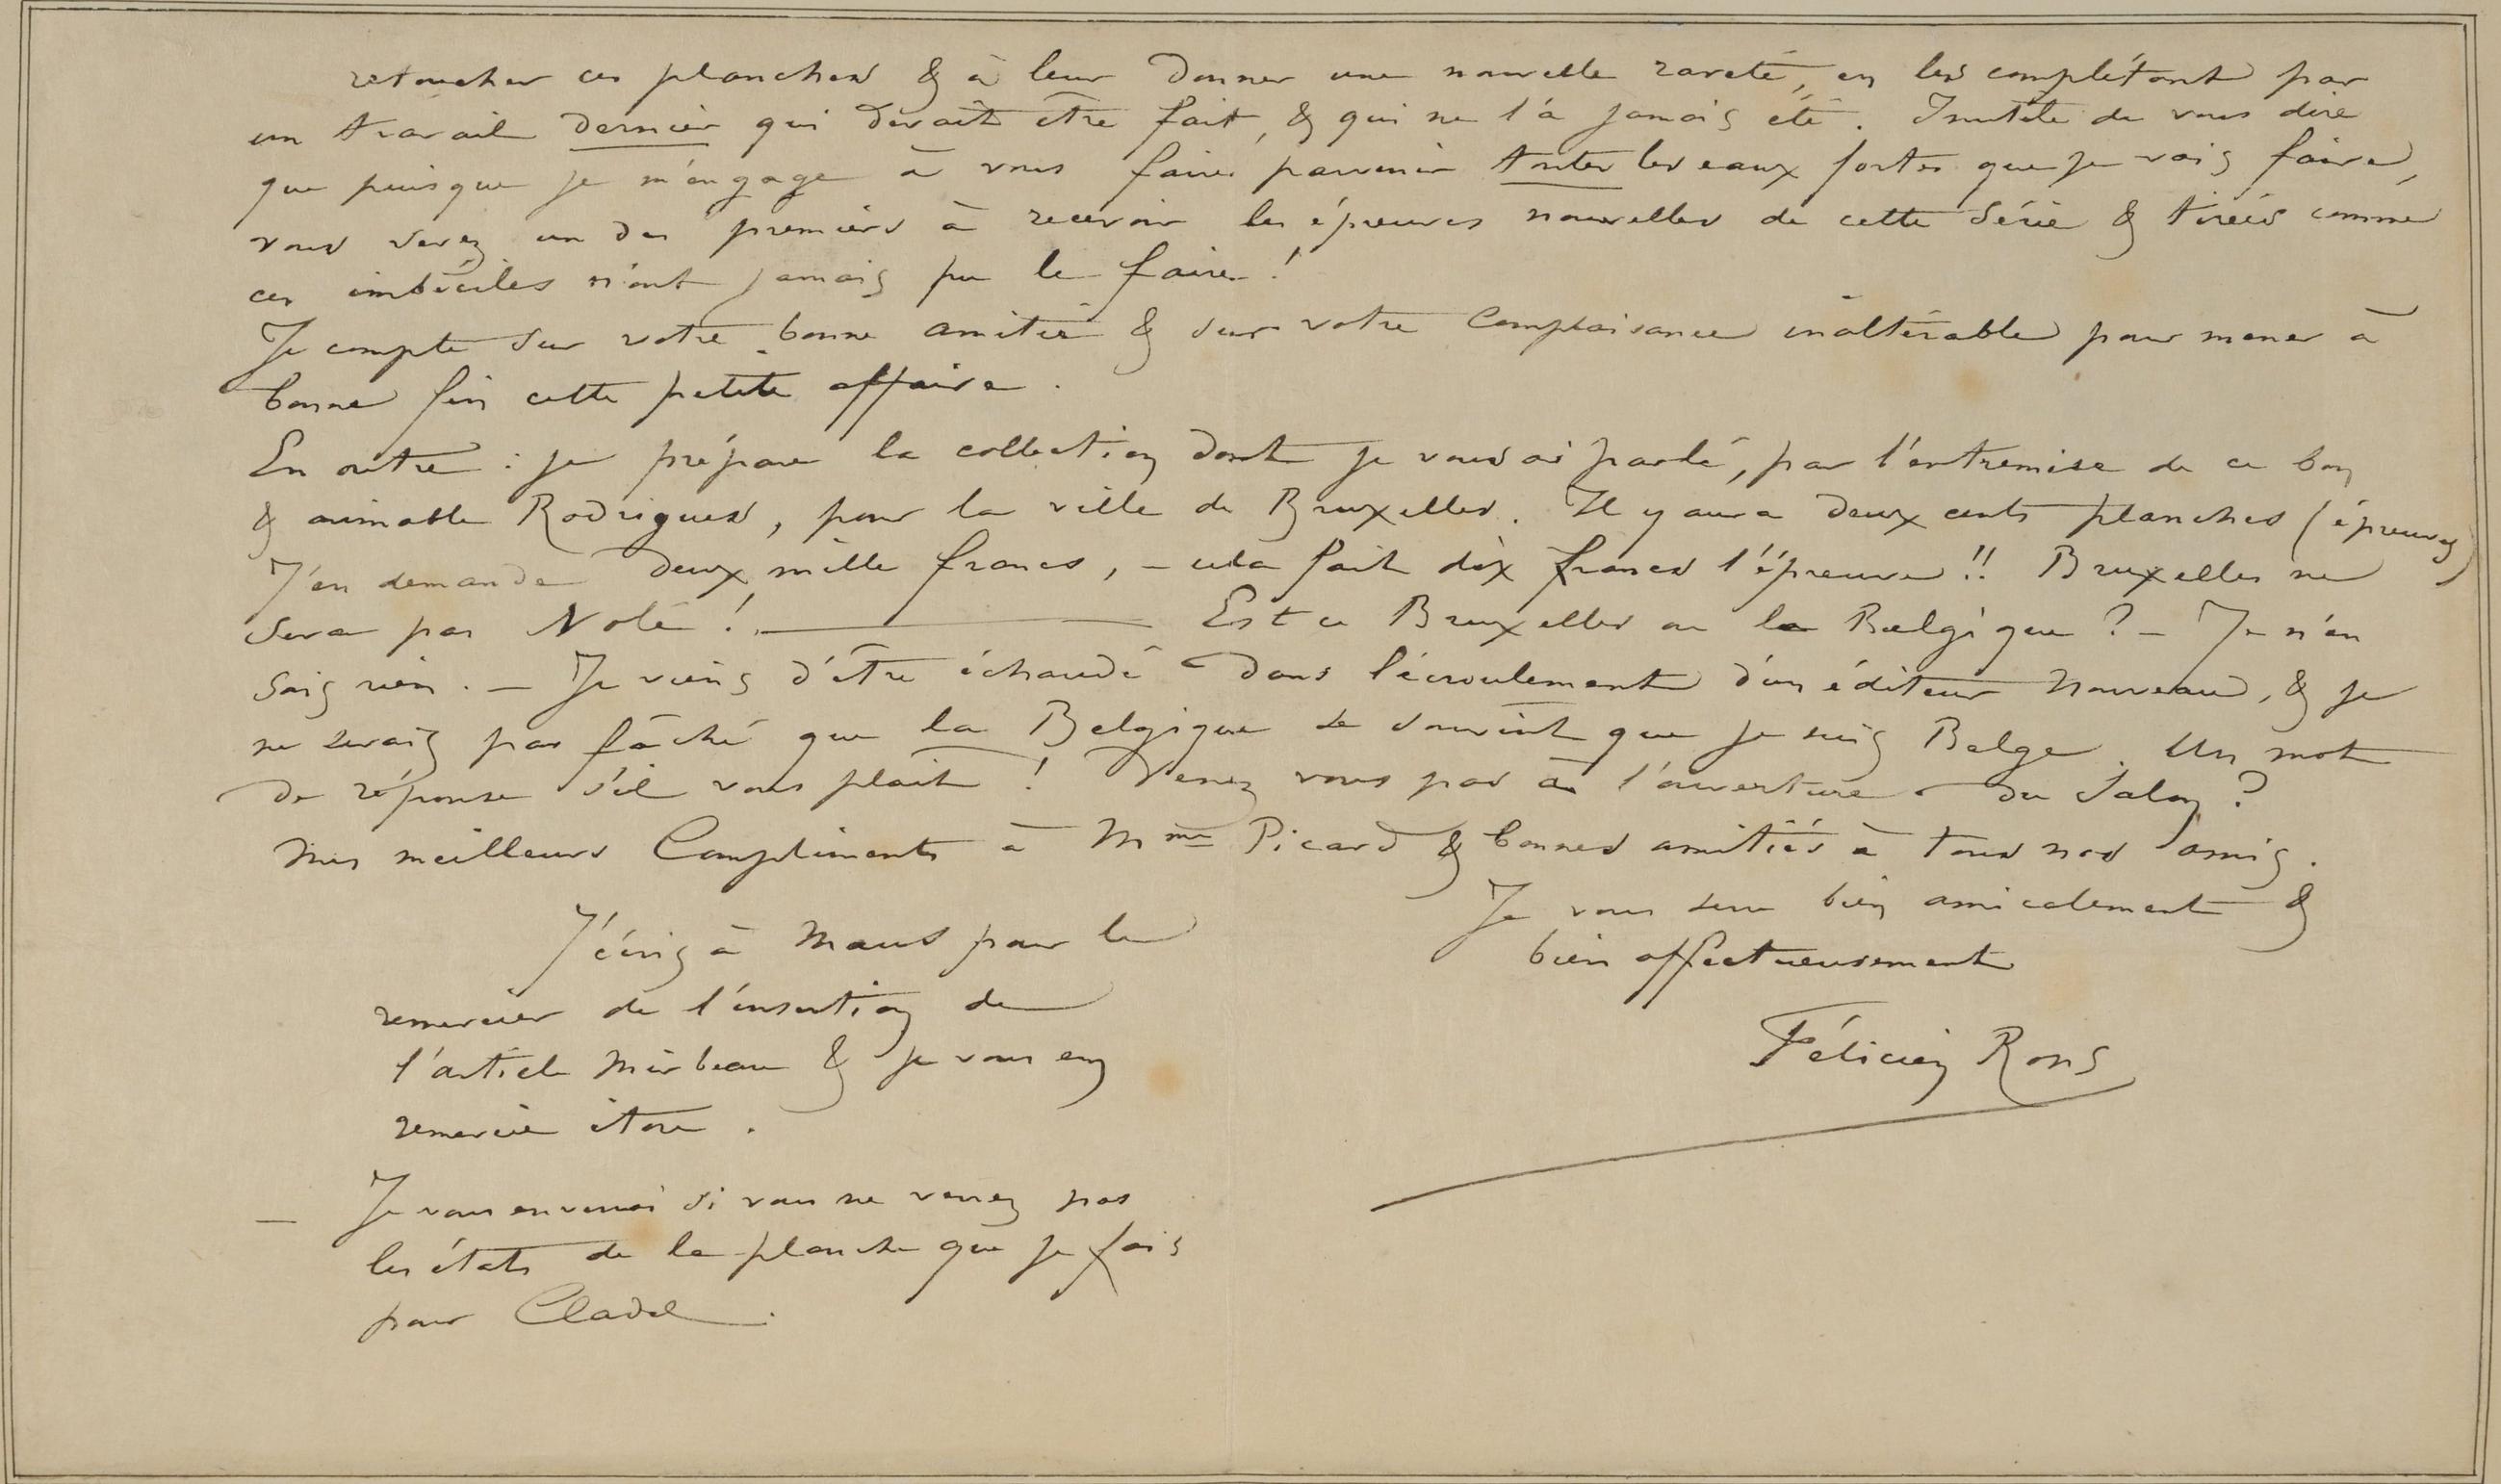 retoucher ces planches & à leur donner une nouvelle rareté, en les complétant par
un travail dernier qui devait être fait, & qui ne l'a jamais été. Inutile de vous dire
que puisque je m'engage à vous faire parvenir toutes les eaux fortes que je vais faire,
vous serez un des premiers à recevoir les épreuves nouvelles de cette série & tirées comme
ces imbéciles n'ont jamais pu le faire !
Je compte sur votre bonne amitié & sur votre complaisance inaltérable pour mener à
bonne fin cette petite affaire.
En outre : je prépare la collection dont je vous ai parlé, par l'entremise de ce bon
& aimable Rodrigues, pour la ville de Bruxelles. Il y aura deux cents planches (épreuves)
J'en demande deux mille francs, – cela fait dix francs l'épreuve !! Bruxelles ne
sera pas Volé ! — Est ce Bruxelles ou la Belgique ? – Je n'en
sais rien. – Je viens d'être échaudé dans l'écroulement d'un éditeur nouveau, & je
ne serais pas fâché que la Belgique se souvint que je suis Belge. Un mot
de réponse s'il vous plaît ! Venez vous pas à l'ouverture du Salon ?
Mes meilleurs Compliments à Mme Picard & bonnes amitiés à tous nos amis.
Je vous serre bien amicalement &
bien affectueusement
Félicien Rops
J'écris à Maus pour le
remercier de l'insertion de
l'article Mirbeau & je vous en
remercie itou.
– Je vous enverrai si vous ne venez pas
les états de la planche que je fais
pour Cladel.